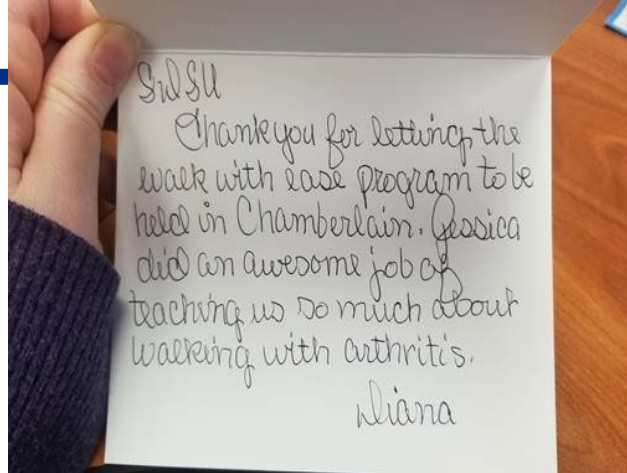 SDSU
Thank you for letting the
walk with ease program to be
held in Chamberlain. Jessica
did an awesome job of
teaching us so much about
walking with arthritis.
Diana